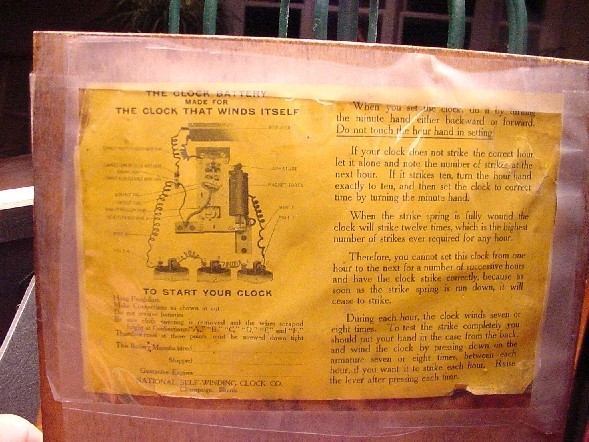 THE CLOCK BATTERY
MADE FOR
THE CLOCK THAT WINDS ITSELF
TO START YOUR CLOCK
Hang Pendulum.
Make Connections as shown in cut
Do not
cloth covering is removed and the wires scraped
bright at Connections "A," "B," "C," "D," "E" and "F."
Thumb screws at these points must be screwed down tight
This Battery Manufactured
Shipped
Guarantee Expires
NATIONAL SELF WINDING CLOCK CO.
Champaign, Illinois
When you set the clock, do it by turning
the minute hand either backward or forward.
Do not touch the hour hand in setting
If your clock does not strike the correct hour
let it alone and note the number of strikes at the
next hour. If it strikes ten, turn the hour hand
exactly to ten, and then set the clock to correct
time by turning the minute hand.
When the strike spring is fully wound the
clock will strike twelve times, which is the highest
number of strikes ever required for any hour.
Therefore, you cannot set this clock from one
hour to the next for a number of successive hours
and have the clock strike correctly, because as
soon as the strike spring is run down, it will
cease to strike.
During each hour, the clock winds seven or
eight times. To test the strike completely you
should put your hand in the case from the back,
and wind the clock by pressing down on the
armature seven or eight times, between each
hour, if you want it to strike each hour. Raise
the lever after pressing each time.